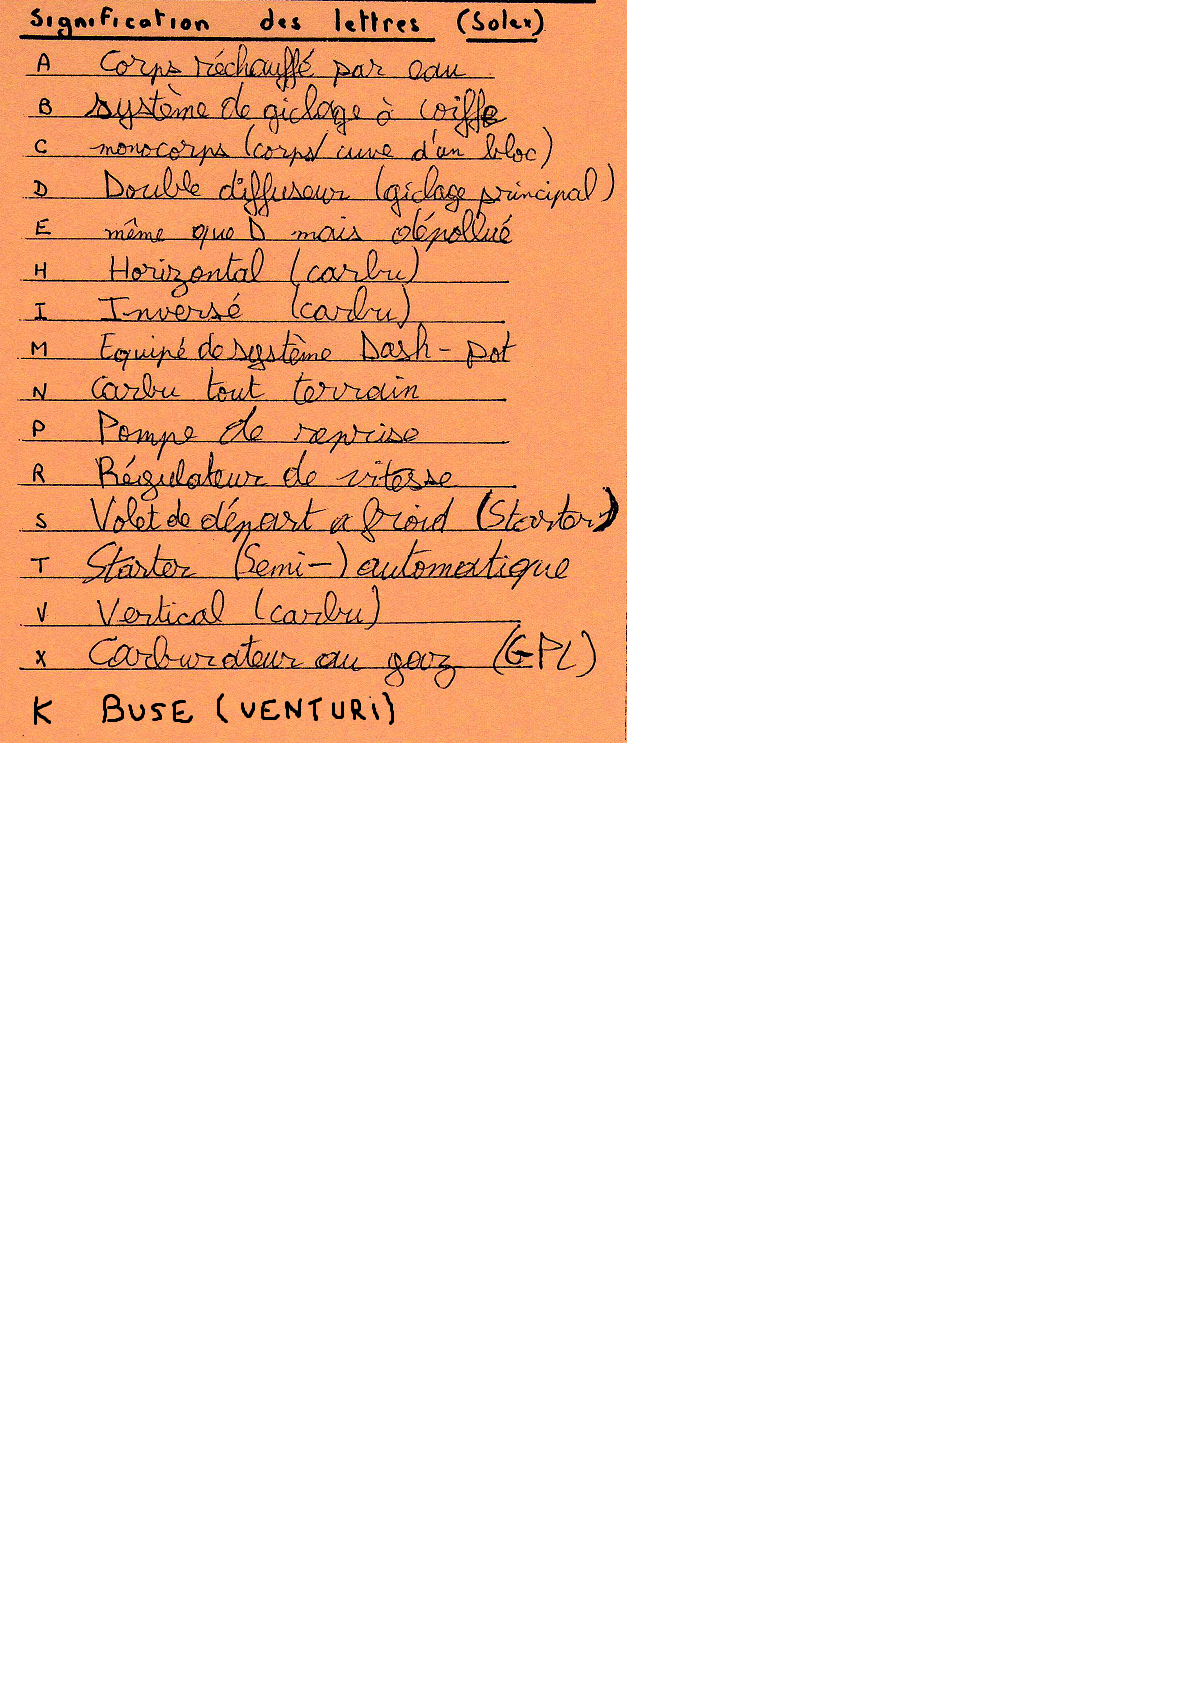 Signification des lettres (Solex)
A Corps réchauffé par eau
B système de giclage à coiffe
C monocorps (corps/cuve d'un bloc)
D Double diffuseur (giclage principal)
E même que D mais dépollué
H Horizontal (carbu)
I Inversé (carbu)
M Equipé de système Dash-pot
N Carbu tout terrain
P Pompe de reprise
R Régulateur de vitesse
S Volet de départ a froid (Starter)
T Starter (Semi-) automatique
V Vertical (carbu)
X Carburateur au gaz (GPL)
K BUSE (VENTURI)